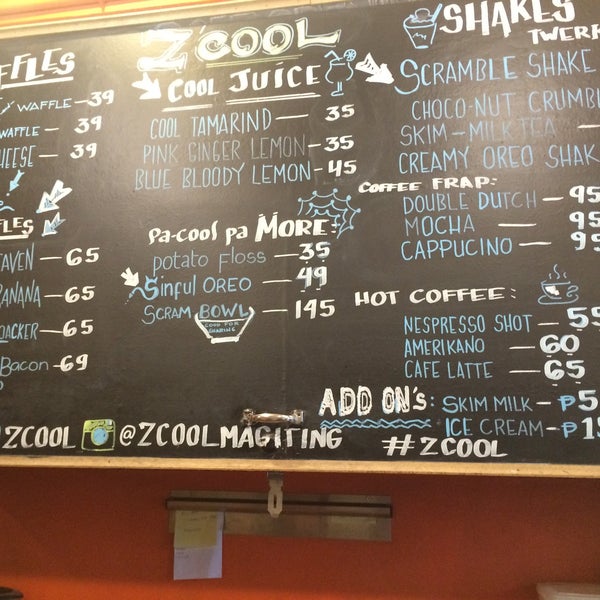 Z'COOL
COOL JUICE
COOL TAMARIND — 35
PINK GINGER LEMON — 35
BLUE BLOODY LEMON — 45
Pa-cool pa MORE:
potato Floss — 35
Sinful OREO — 49
SCRAM BOWL — 145
GOOD FOR SHARING
WAFFLE — 39
WAFFLE — 39
39
65
65
65
Bacon — 69
SHAKES
SCRAMBLE SHAKE
CHOCO-NUT
SKIM-MILK TEA
CREAMY OREO
COFFEE FRAP:
DOUBLE DUTCH — 95
MOCHA — 95
CAPPUCINO —
HOT COFFEE:
NESPRESSO SHOT —
AMERIKANO — 60
CAFE LATTE — 65
ADD ON's: SKIM MILK —
ICE CREAM —
ZCOOL @ZCOOLMAGITING #ZCOOL